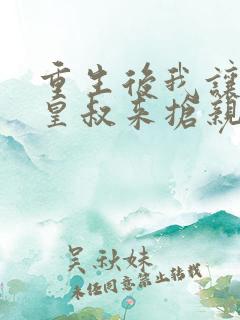 重生後我讓
皇叔來搶親
吳秋妹
未经同意禁止转载